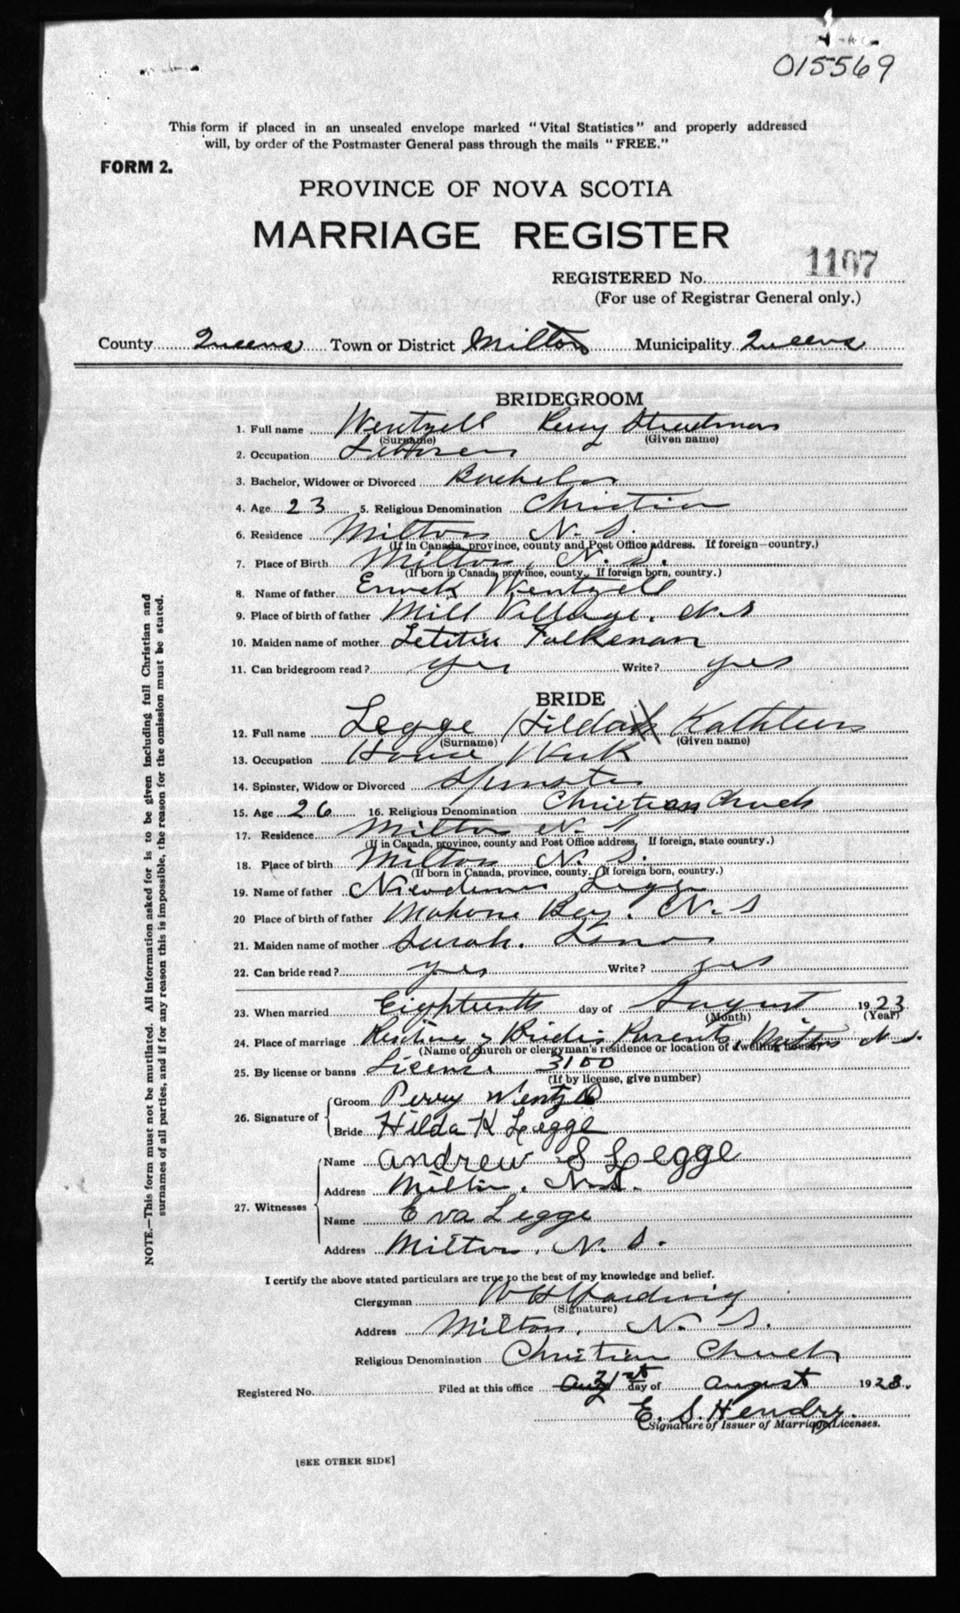 015569
This form if placed in an unsealed envelope marked "Vital Statistics" and properly addressed
will, by order of the Postmaster General pass through the mails "FREE."
FORM 2.
PROVINCE OF NOVA SCOTIA
MARRIAGE REGISTER
REGISTERED No. 1107
(For use of Registrar General only.)
County Queens Town or District Milton Municipality Queens
BRIDEGROOM
1. Full name Wentzell Perry
(Surname) (Given name)
2. Occupation
3. Bachelor, Widower or Divorced Bachelor
4. Age 23 5. Religious Denomination Christian
6. Residence Milton N. S.
(If in Canada, province, county and Post Office address. If foreign—country.)
7. Place of Birth Milton, N. S.
(If born in Canada, province, county. If foreign born, country.)
8. Name of father Wentzell
9. Place of birth of father Mill Village, N.S
10. Maiden name of mother Letitia Falkenan
11. Can bridegroom read? yes Write? yes
BRIDE
12. Full name Legge Hilda Kathleen
(Surname) (Given name)
13. Occupation House Work
14. Spinster, Widow or Divorced Spinster
15. Age 26 16. Religious Denomination Christian Church
17. Residence Milton N. S
(If in Canada, province, county and Post Office address, If foreign, state country.)
18. Place of birth Milton N. S.
(If born in Canada, province, county. If foreign born, country.)
19. Name of father Nicodemus Legge
20 Place of birth of father Mahone Bay. N. S
21. Maiden name of mother Sarah.
22. Can bride read? yes Write? yes
23. When married Eighteenth day of August 1923
(Month) (Year)
24. Place of marriage Residence of Brides Parents, Milton N. S.
(Name of church or clergyman's residence or location of dwelling house)
25. By license or banns License 3100
(If by license, give number)
26. Signature of Groom Perry Wentzell
Bride Hilda K Legge
27. Witnesses Name Andrew S Legge
Address Milton, N.S.
Name Eva Legge
Address Milton, N. S.
I certify the above stated particulars are true to the best of my knowledge and belief.
Clergyman W H Harding
(Signature)
Address Milton, N. S.
Religious Denomination Christian Church
Registered No. Filed at this office 21st day of august 1923.
E. S. Hendry.
Signature of Issuer of Marriage Licenses.
[SEE OTHER SIDE]
NOTE.—This form must not be mutilated. All information asked for is to be given including full Christian and
surnames of all parties, and if for any reason this is impossible, the reason for the omission must be stated.